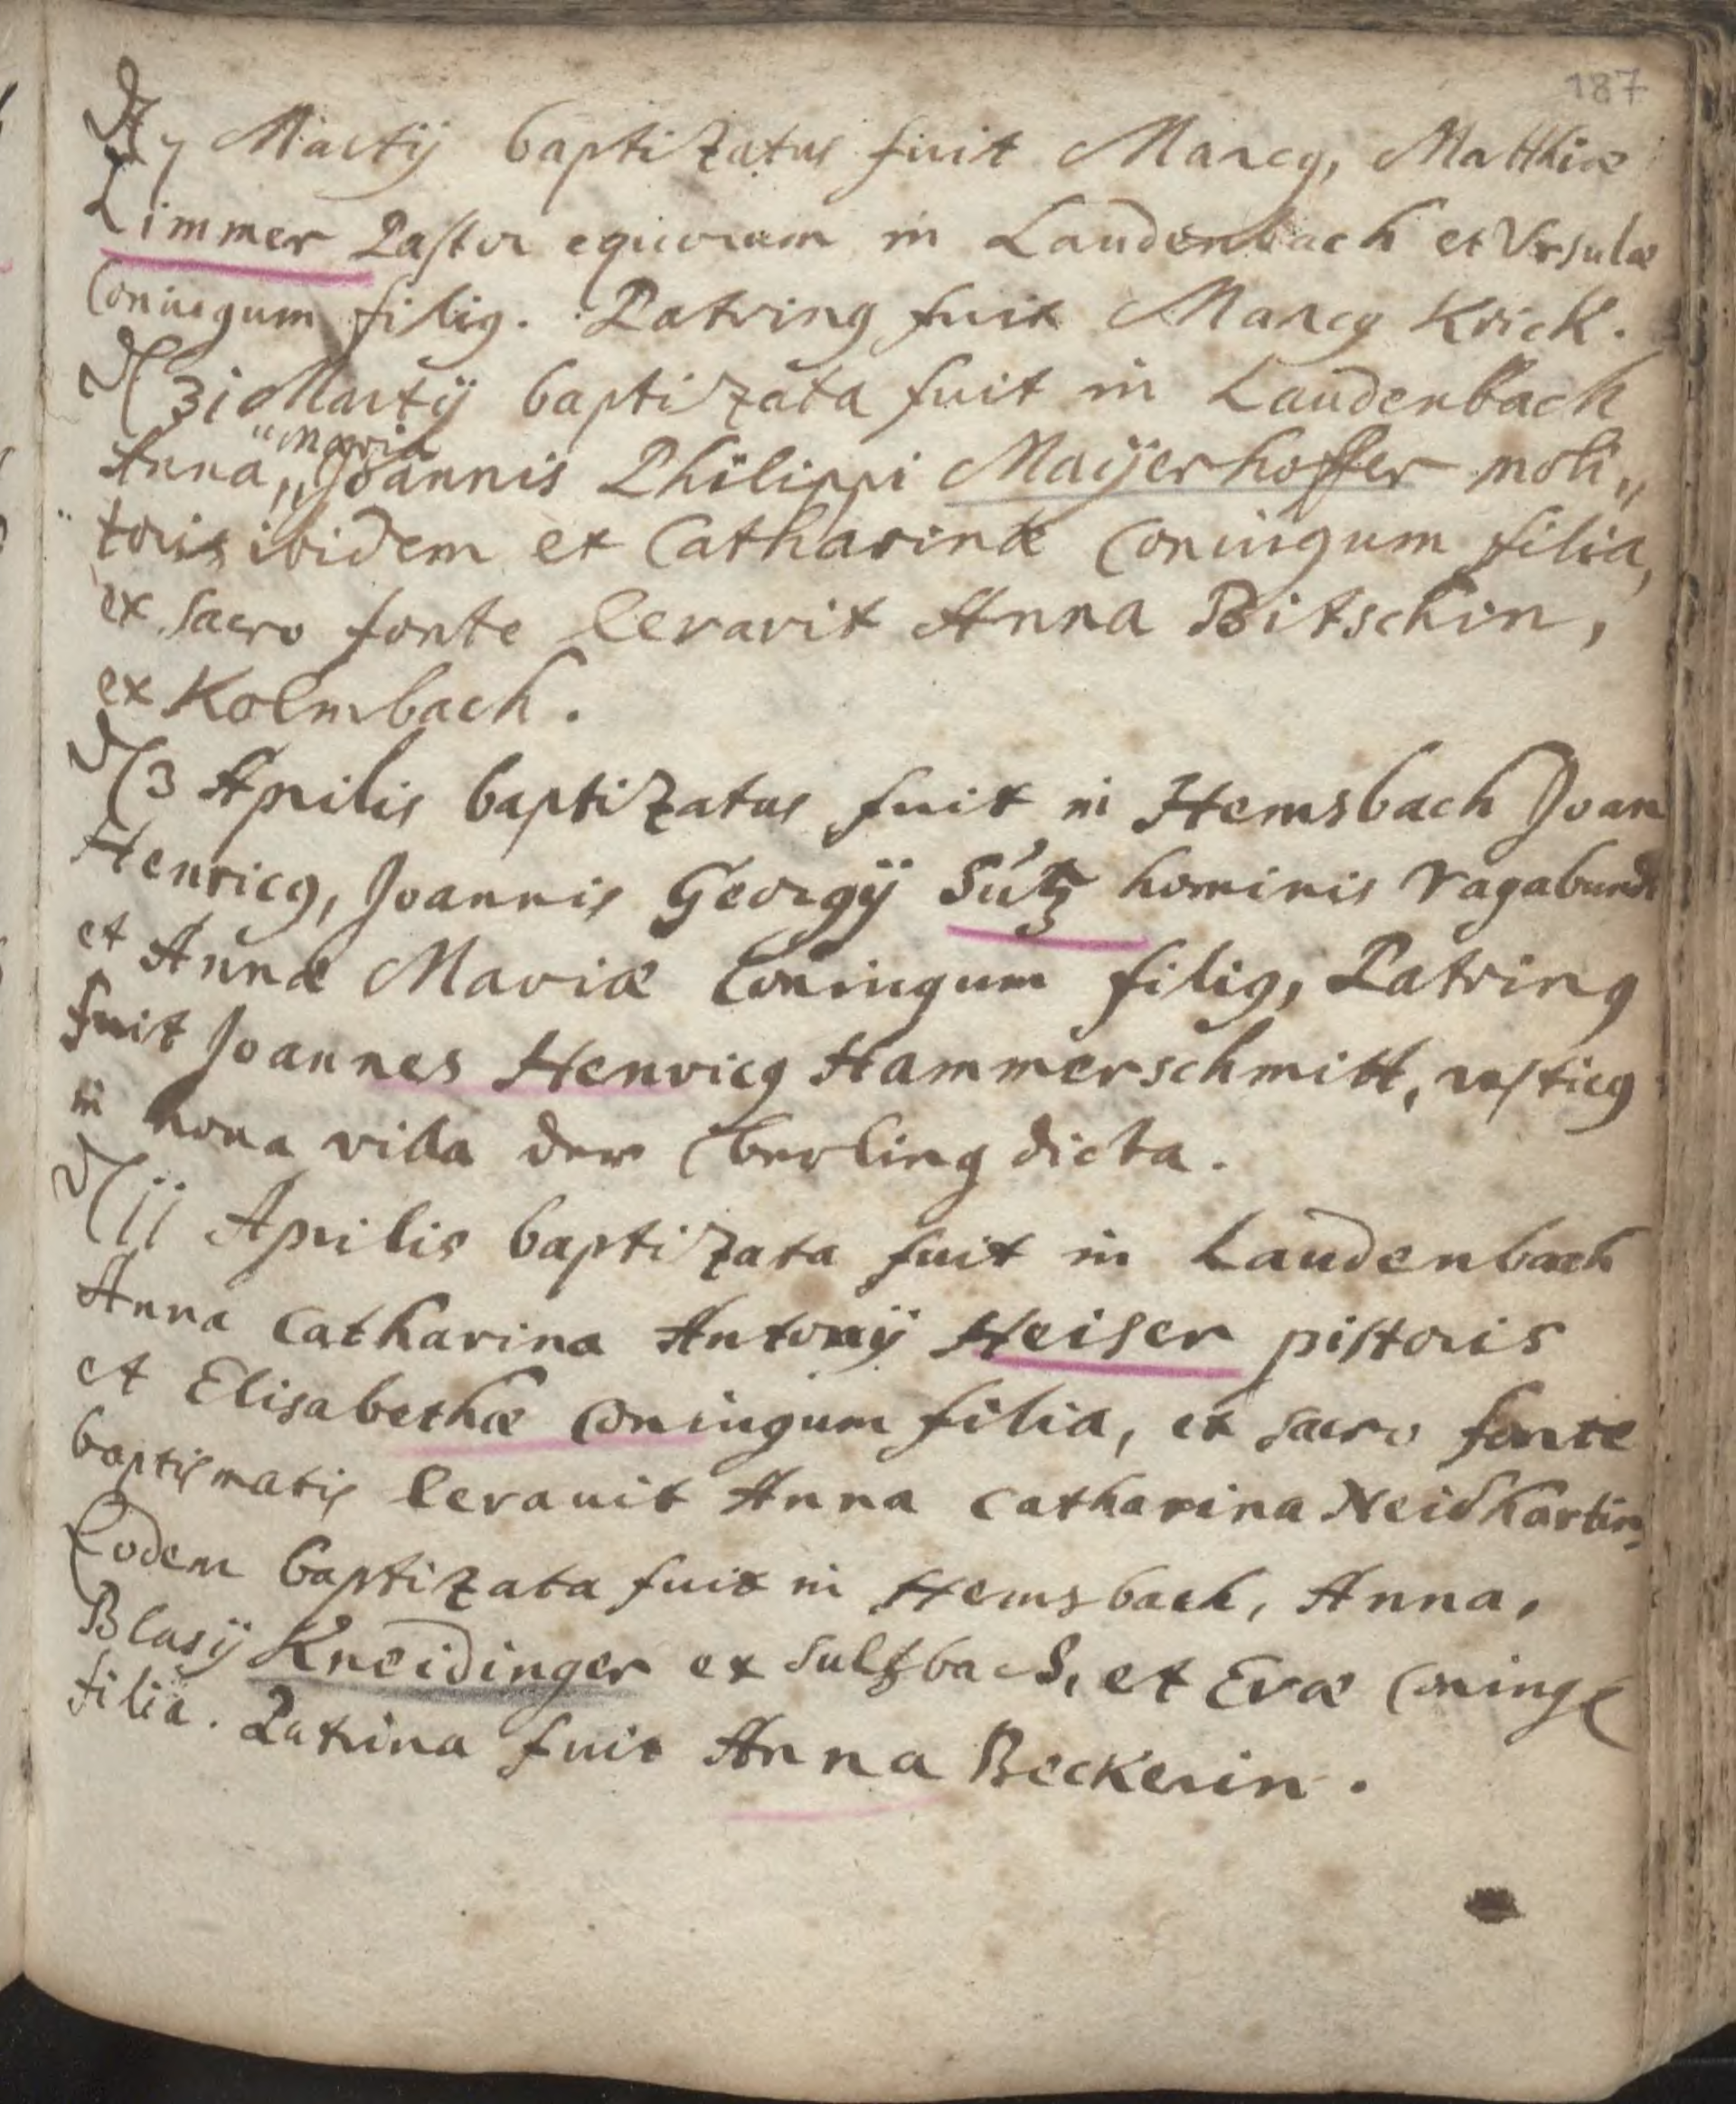 187
D 7 Martij baptizatus fuit Marcg, Matthiæ
Limmer Pastor equorum in Laudenbach et Vrsulæ
Coniugum filig. Patring fuit Marcg Krick.
D 31 Martij baptizata fuit in Laudenbach
Anna, „Maria Joannis Philippi Maijerhoffer moli„
toris ibidem et Catharinæ Coniugum filia,
ex sacro fonte levavit Anna Bitschin,
ex Kolmbach.
D 3 Aprilis baptizatus fuit in Hemsbach Joan
Henricg, Joannis Georgij Sútz hominis vagabundi
et Annæ Mariæ Coniugum filig, Patring
fuit Joannes Henricg Hammerschmitt, rusticg
in nona villa der Oberling dicta.
D 11 Aprilis baptizata fuit in Laudenbach
Anna Catharina Antonij Heiser pistoris
et Elisabethæ Coniugum filia, ex sacro fonte
baptismatis levauit Anna Catharina Neidhartin,
Eodem baptizata fuit in Hemsbach, Anna,
Blasij Kneidinger ex Sultzbach, et Evæ Coniug
filia. Patrina fuit Anna Beckerin.